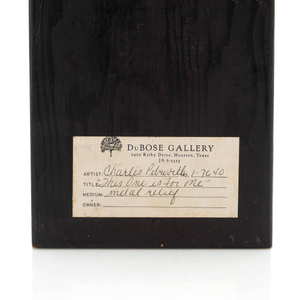 DUBOSE GALLERY
Kirby Drive, Houston, Texas
ARTIST: Charles Pebworth 1-7640
TITLE: "This One is for Me"
MEDIUM: metal relief
OWNER: